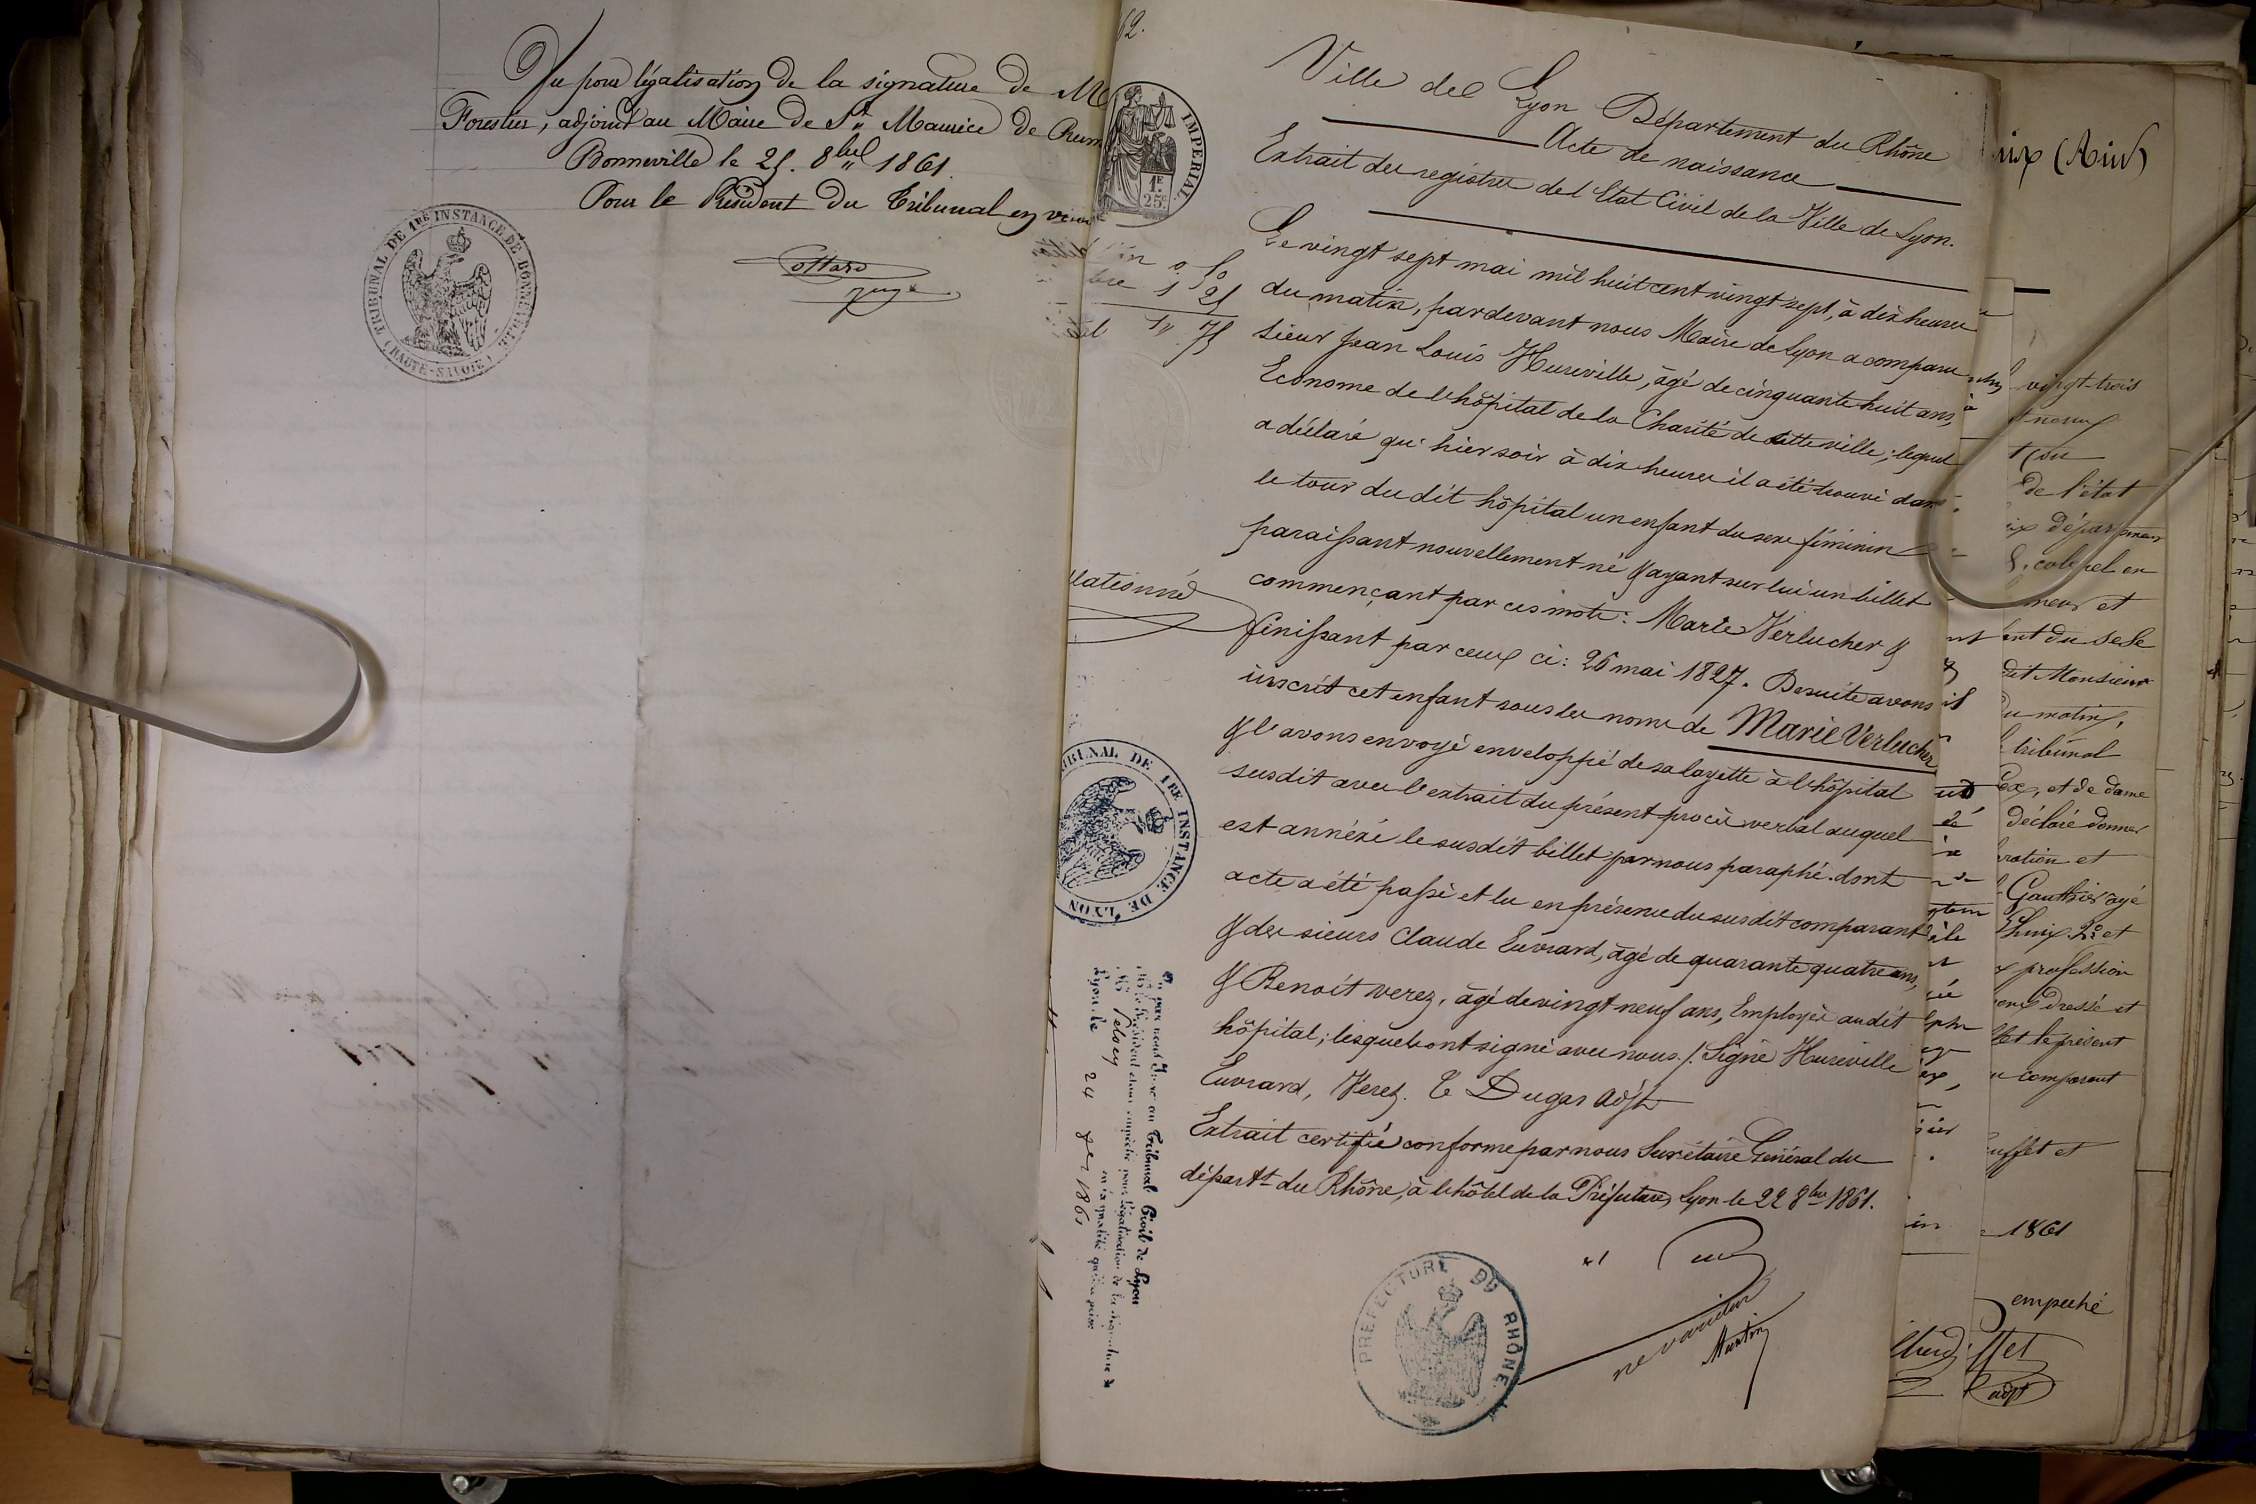 Vu pour légalisation de la signature de M
Forestier, adjoint au Maire de St Maurice de Rum
Bonneville le 25. 8bre 1861.
Pour le Président du Tribunal en
Juge
TRIBUNAL DE 1RE INSTANCE DE BONNEVILLE
(HAUTE-SAVOIE)
62.
IMPERIAL
1F
25c
Ville de Lyon Département du Rhône
Acte de naissance
Extrait des registres de l'Etat Civil de la Ville de Lyon.
Le vingt sept mai mil huit cent vingt sept, à dix heures
du matin, pardevant nous Maire de Lyon a comparu
Sieur Jean Louis Hureville, âgé de cinquante huit ans,
Econome de l'hôpital de la Charité de cette ville; lequel
a déclaré qu'hier soir à dix heures il a été trouvé dans
le tour du dit hôpital un enfant du sexe féminin
paraissant nouvellement né & ayant sur lui un billet
commençant par ces mots: Marie Verlucher &
finissant par ceux ci: 26 mai 1827. Desuite avons
inscrit cet enfant sous les noms de Marie Verlucher
& l'avons envoyé enveloppé de sa layette à l'hôpital
susdit avec l'extrait du présent procès verbal auquel
est annéxé le susdit billet par nous paraphé. dont
acte a été passé et lu en présence du susdit comparant
& des sieurs Claude Euvrard, âgé de quarante quatre ans,
& Benoit Verez, âgé de vingt neuf ans, Employés audit
hôpital; lesquels ont signé avec nous ./. Signé Hureville
Euvrard, Verez. & Dugas adjt
Extrait certifié conforme par nous Secrétaire Général du
départt du Rhône, à l'hôtel de la Préfecture, Lyon le 22 8bre 1861.
ne varietur
Martin
PRÉFECTURE DU RHÔNE
TRIBUNAL DE 1RE INSTANCE
DE LYON
Vu par nous Juge au Tribunal Civil de Lyon
Mr le Président étant empêché pour légalisation de la signature de
Lyon le 24 8bre 1861
(Ain)
vingt-trois
de l'état
et
du sexe
dit Monsieur
du matin,
tribunal
Gex, et de dame
déclaré donner
et
Gauthier âgé
et
profession
dressé et
le présent
comparant
et
1861
empêché
adjt